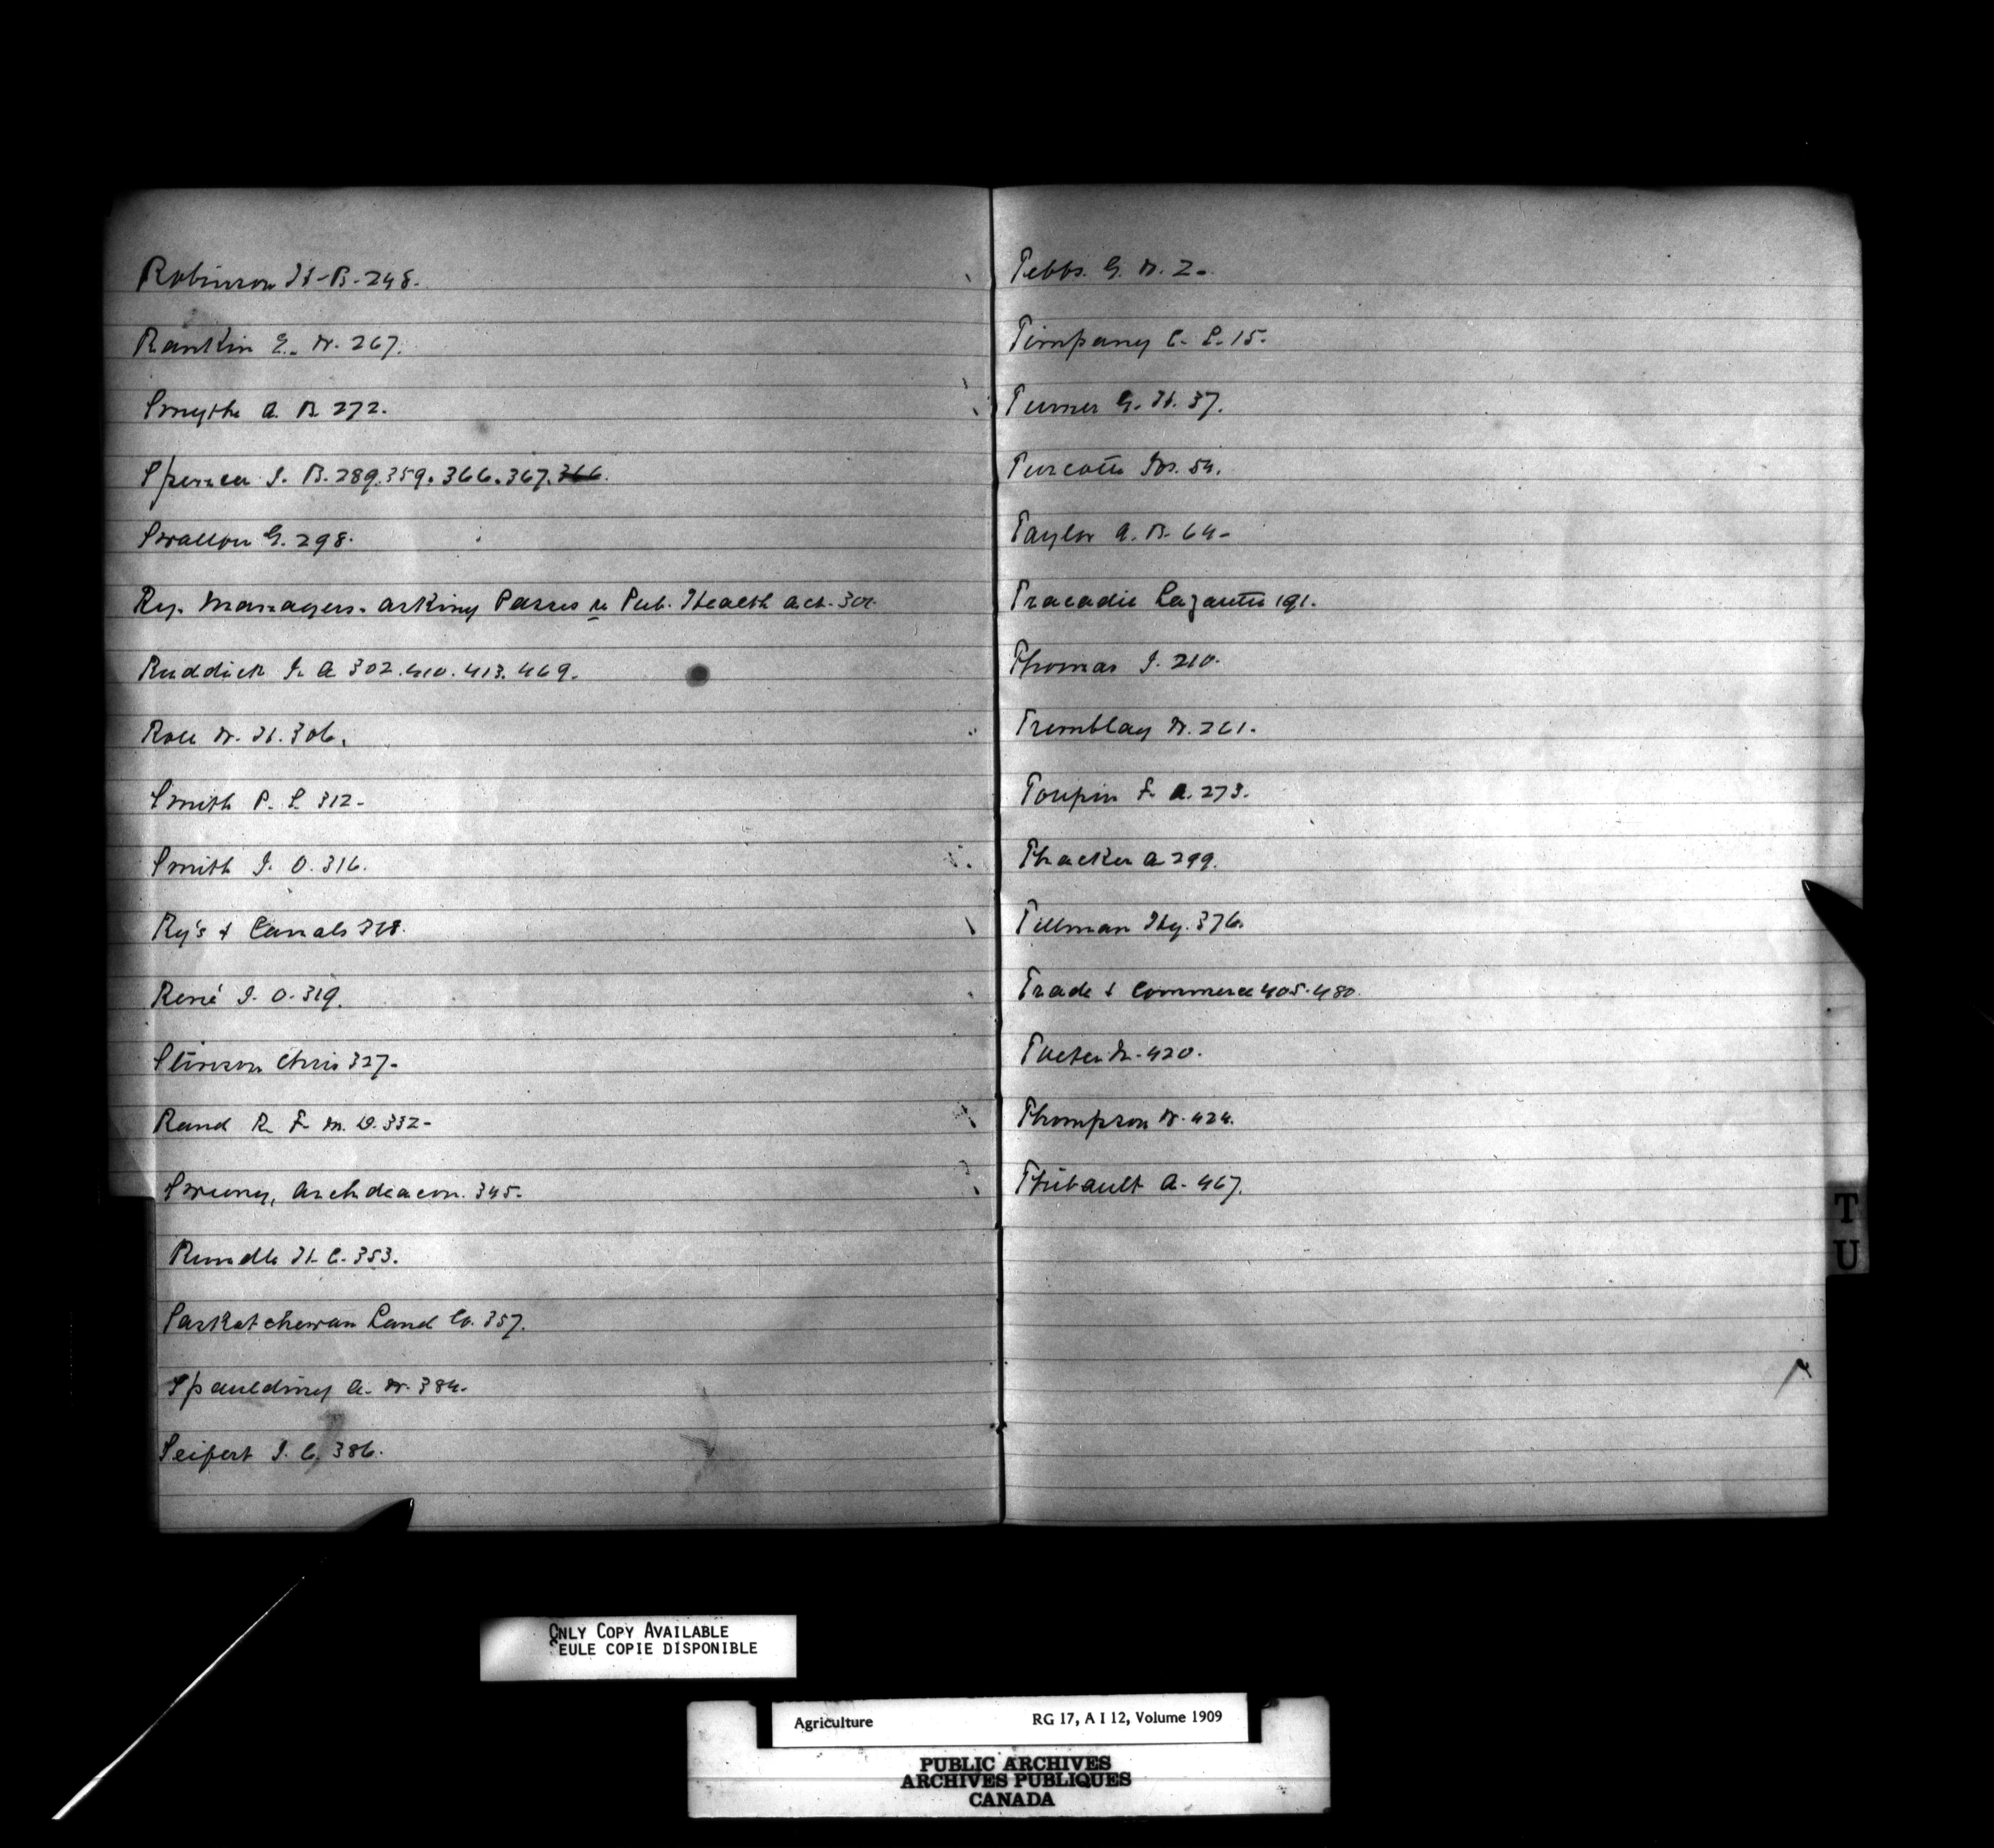 Robinson H. B. 248.
Rankin E. W. 267.
Smythe A. B. 272.
Spencer J. B. 289. 359. 366. 367. 366.
Swallow G. 298.
Ry. Managers. asking Passes re Pub. Health Act. 301.
Ruddick J. A 302. 410. 413. 469.
Roll W. H. 306.
Smith P. L. 312.
Smith J. O. 316.
Ry's & Canals 318.
René J. O. 319.
Stinson Chris 327.
Rand R. F. M. D. 332.
Archdeacon. 345.
Rundle H. C. 353.
Saskatchewan Land Co. 357.
Spaulding A. W. 384.
Seifert J. C. 386.
Tebbs. G. W. 2.
Timpany C. L. 15.
Turner G. H. 37.
Turcotte Jos. 54.
Taylor A. B. 64.
Tracadie Lazaretto 191.
Thomas J. 210.
Tremblay W. 261.
Toupin F. A. 273.
Thacker A 299.
Tillman Hy. 376.
Trade & Commerce 405. 480.
420.
Thompson W. 424.
Thibault A. 467.
T
U
ONLY COPY AVAILABLE
SEULE COPIE DISPONIBLE
Agriculture RG 17, A I 12, Volume 1909
PUBLIC ARCHIVES
ARCHIVES PUBLIQUES
CANADA